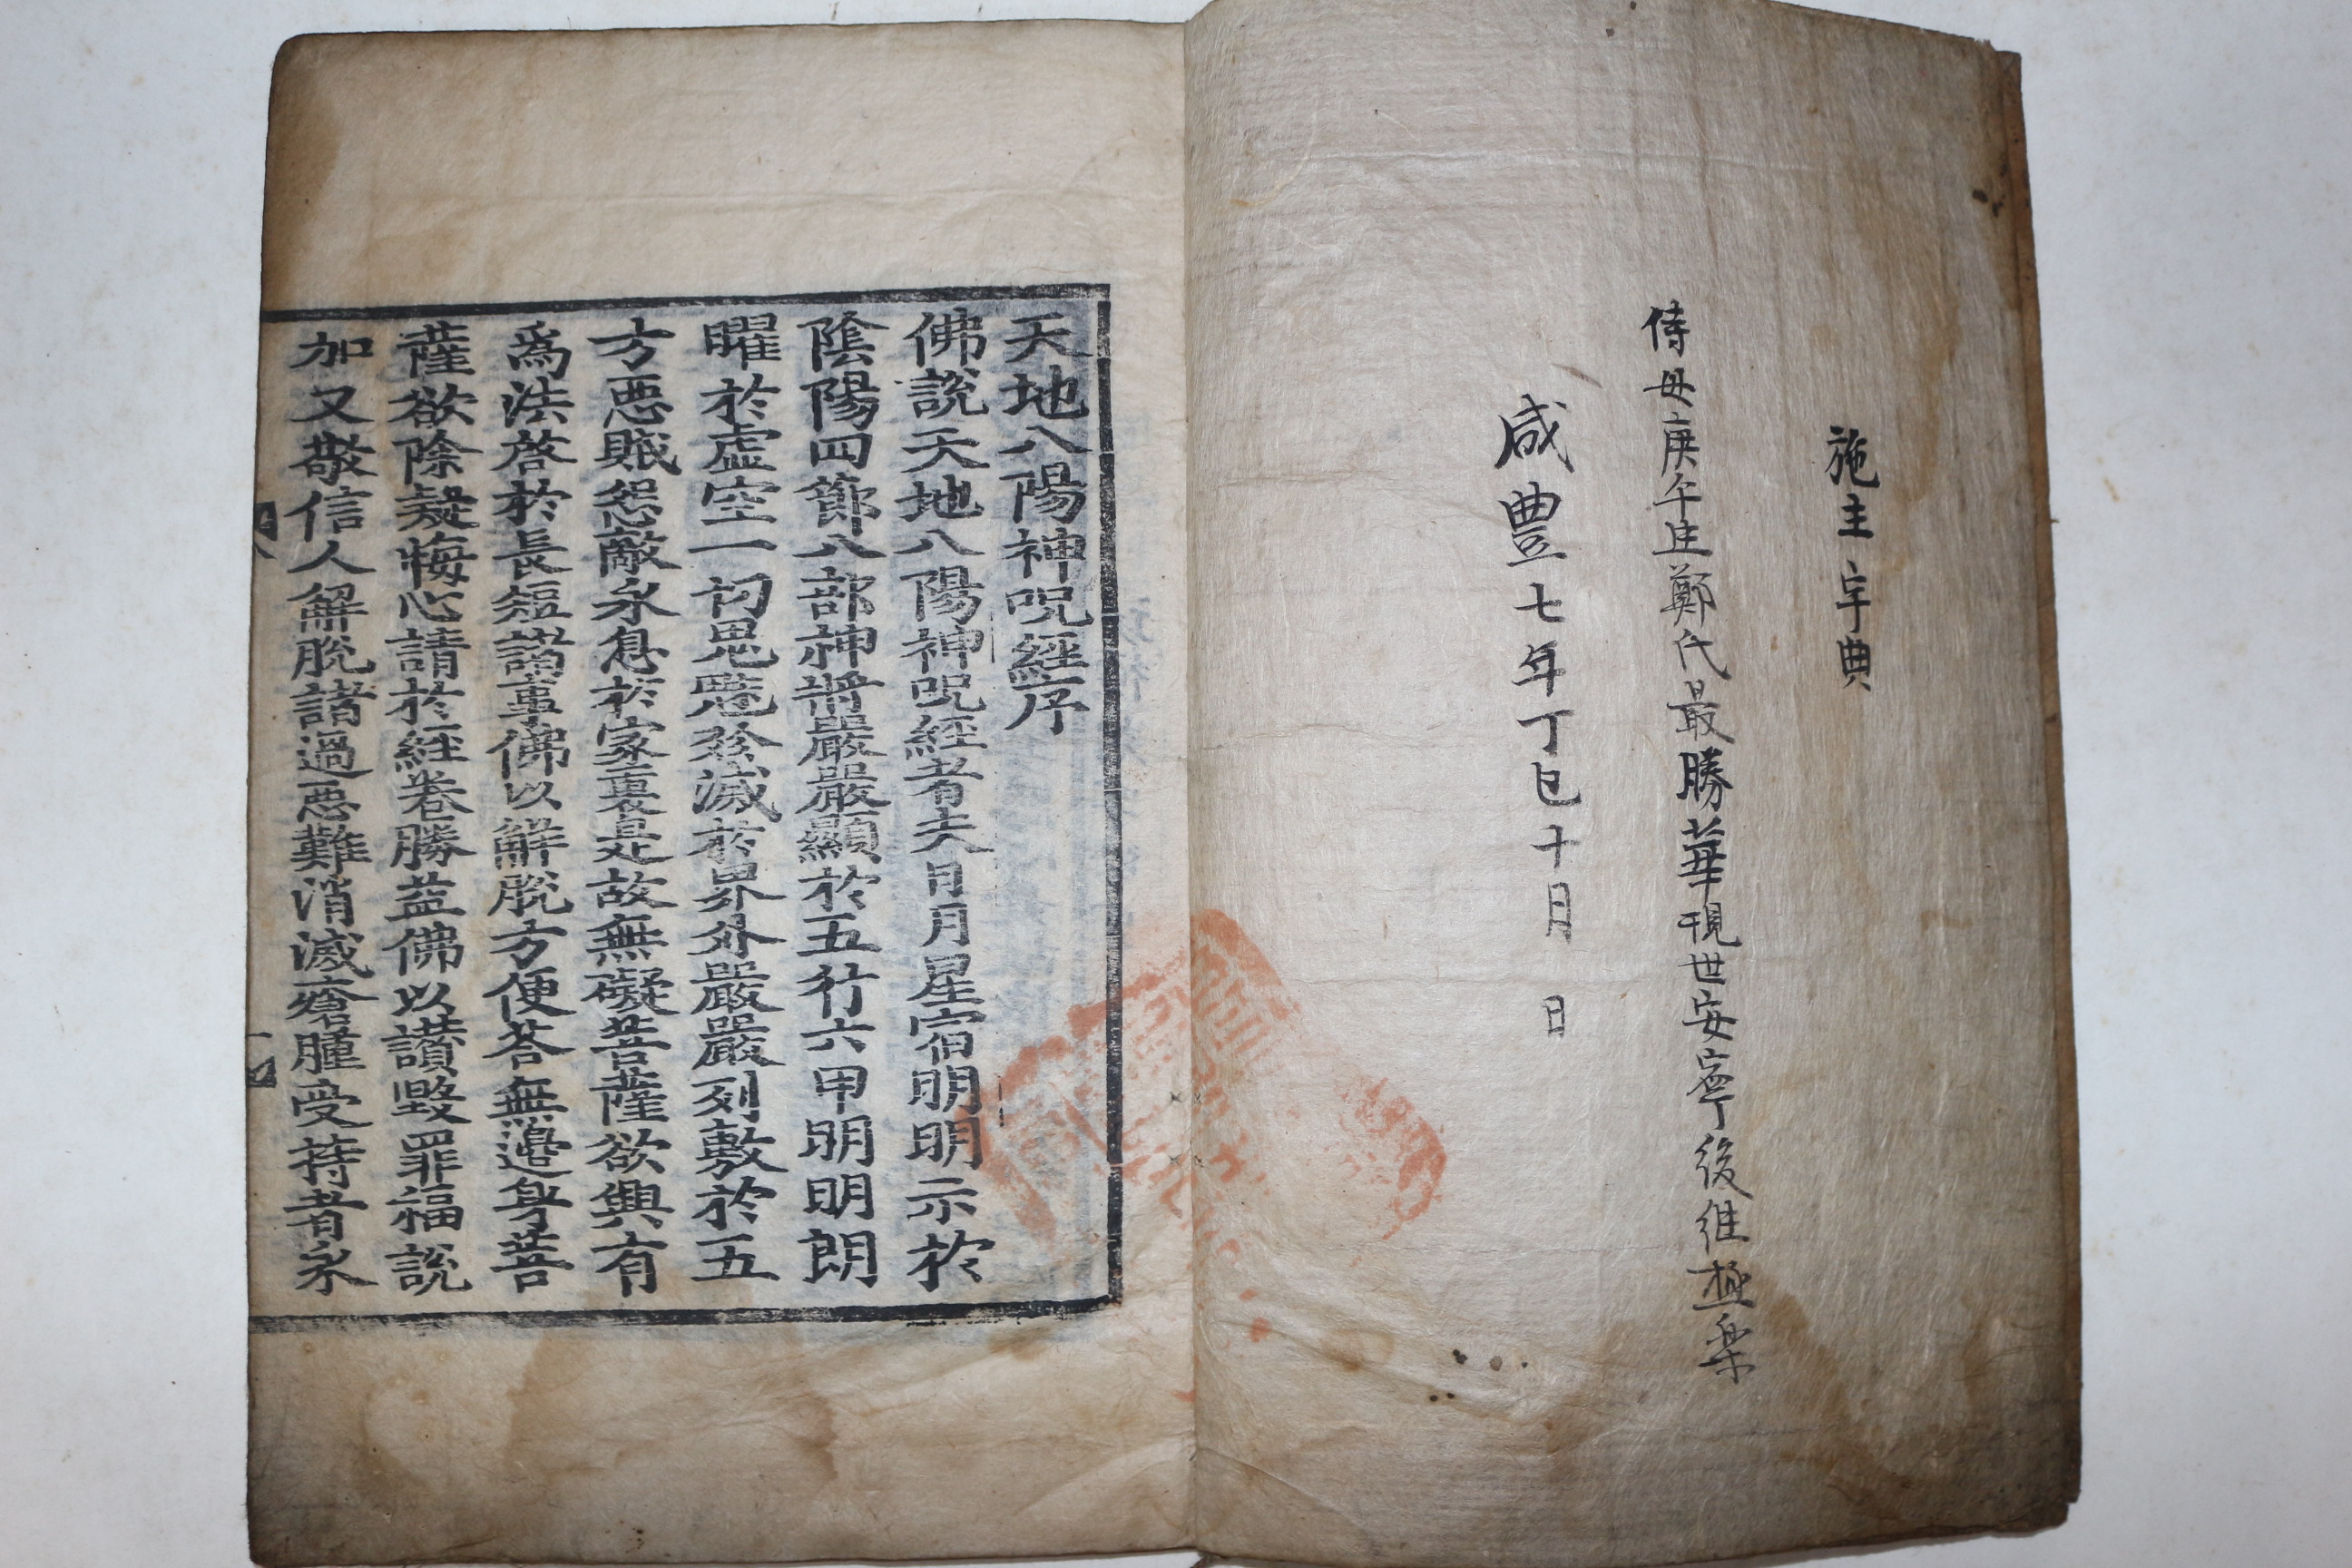 施主宇典
侍母庚午生鄭氏最勝華現世安寧後往極楽
咸豊七年丁巳十月 日
天地八陽神呪經序
佛說天地八陽神呪經者夫日月星宿明明示於
陰陽四節八部神將嚴嚴顯於五行六甲明明朗
曜於虛空一切思魔殄滅於界外嚴嚴列敷於五
方惡賊怨敵永息於家裏是故無礙菩薩欲與有
爲法啓於長短謁畫佛以解脫方便荅無邉身菩
薩欲除疑悔心請於經卷勝益佛以讃毀罪福說
加又敬信人解脫諸過惡難消滅瘡腫受持者永